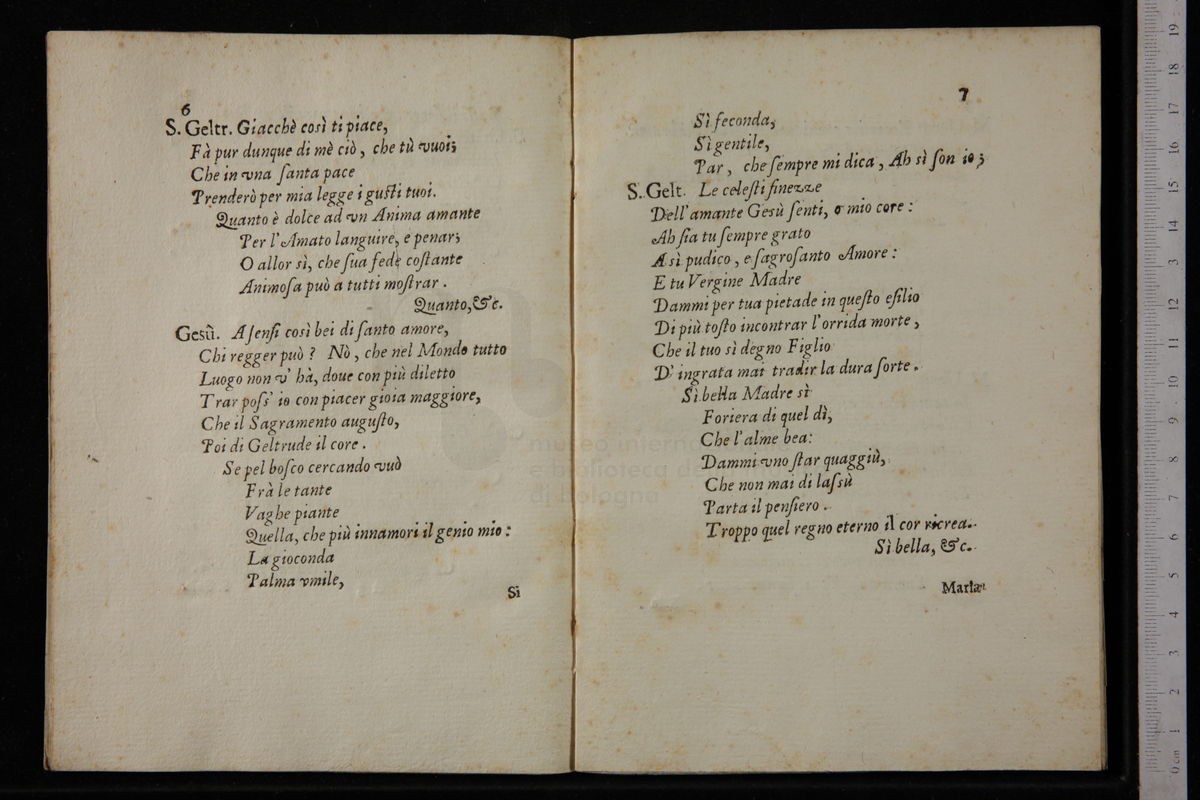 6
S. Geltr. Giacchè così ti piace,
Fà pur dunque di mè ciò, che tù vuoi;
Che in vna ſanta pace
Prenderò per mia legge i guſti tuoi.
Quanto è dolce ad vn Anima amante
Per l'Amato languire, e penar;
O allor sì, che ſua fede coſtante
Animoſa può a tutti moſtrar.
Quanto, &c.
Gesù. A ſenſi così bei di ſanto amore,
Chi regger può? Nò, che nel Mondo tutto
Luogo non v' hà, doue con più diletto
Trar poſs' io con piacer gioia maggiore,
Che il Sagramento auguſto,
Poi di Geltrude il core.
Se pel boſco cercando vuò
Frà le tante
Vaghe piante
Quella, che più innamori il genio mio:
La gioconda
Palma vmile,
Si
7
Sì feconda,
Sì gentile,
Par, che ſempre mi dica, Ah sì ſon io;
S. Gelt. Le celeſti finezze
Dell'amante Gesù ſenti, o mio core:
Ah ſia tu ſempre grato
A sì pudico, e ſagroſanto Amore:
E tu Vergine Madre
Dammi per tua pietade in queſto eſilio
Di più toſto incontrar l'orrida morte,
Che il tuo sì degno Figlio
D' ingrata mai tradir la dura ſorte.
Sì bella Madre sì
Foriera di quel dì,
Che l'alme bea:
Dammi vno ſtar quaggiù,
Che non mai di laſsù
Parta il penſiero.
Troppo quel regno eterno il cor ricrea.
Sì bella, &c.
Maria
museo interna
e biblioteca de
di bologna
0 cm 1 2 3 4 5 6 7 8 9 10 11 12 13 14 15 16 17 18 19